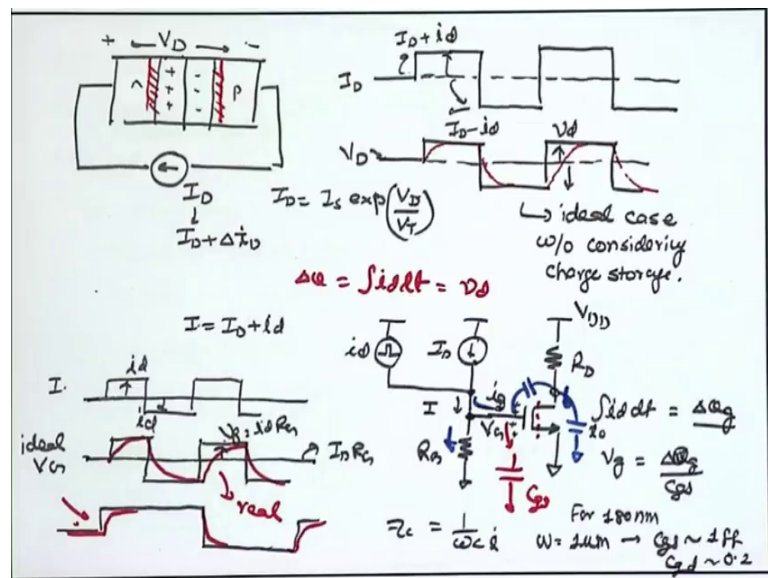 + ← V_D → -
n + + + - - - p
I_D
↓
I_D + Δi_D
I_D = I_s exp(V_D/V_T)
I_D + id
I_D
I_D - id
V_D
vd
↳ ideal case
w/o considering
charge storage.
ΔQ = ∫id dt = vd
I = I_D + id
I
id
id
ideal
V_G
V_R = id R_G
I_D R_G
real
id
I_D
I
ig
V_G
R_G
Cgs
V_DD
R_D
∫id dt = ΔQg
Vg = ΔQg/Cgs
Zc = 1/ωCj
For 180nm
W = 1um → Cgs ~ 1fF
Cgd ~ 0.2